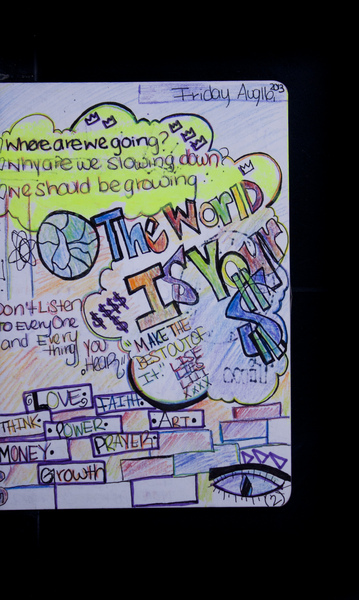 Friday, Aug 16,
Where are we going?
Why are we slowing down?
We should be growing
The World
Is Yours
$$$
Don't Listen
To EveryOne
and Every
thing
You
Hear,,
"MAKE THE
BEST OUT OF
IT."
LOVE.
FAITH.
THINK.
POWER.
ART.
MONEY.
PRAYER.
Growth
(2)